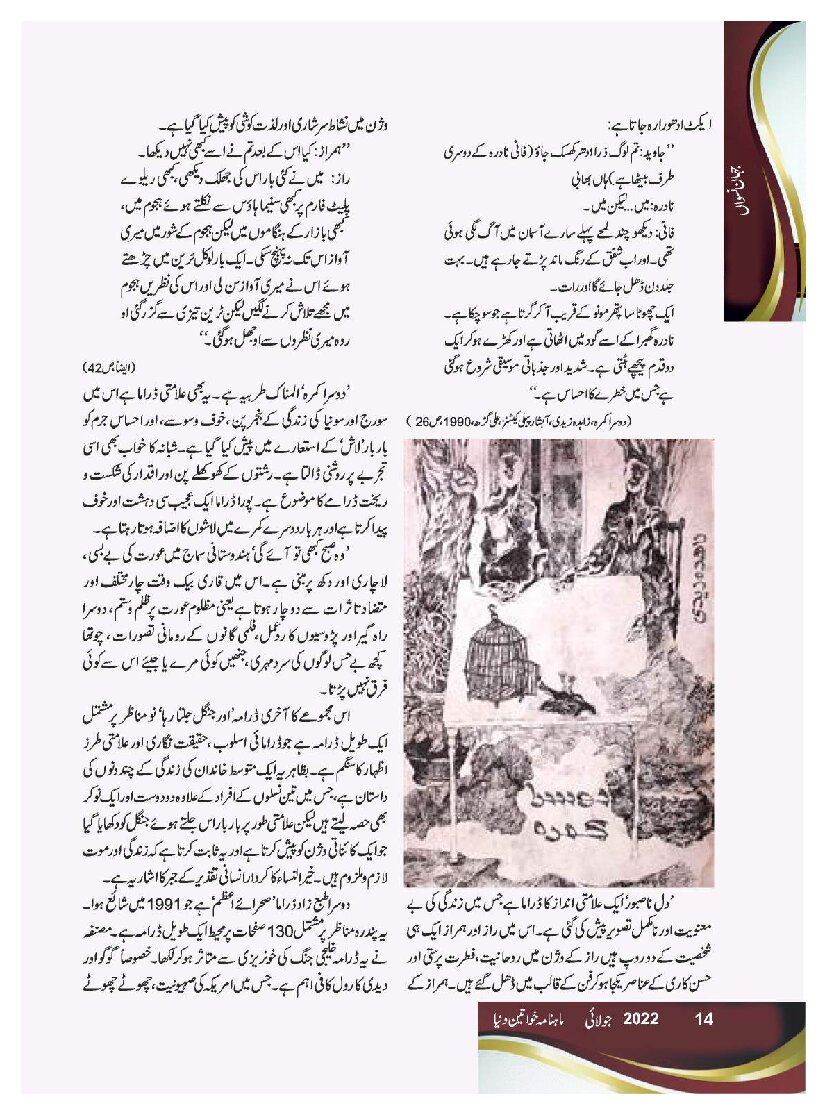 جہان نسواں
ایکٹ ادھورا رہ جاتا ہے:
’’جاوید: تم لوگ ذرا ادھر کھسک جاؤ (فانی نادرہ کے دوسری
طرف بیٹھا ہے) ہاں بھابی
نادرہ: میں...لیکن میں۔
فانی: دیکھو چند لمحے پہلے سارے آسمان میں آگ لگی ہوئی
تھی۔ اور اب شفق کے رنگ ماند پڑتے جارہے ہیں۔ بہت
جلد دن ڈھل جائے گا اور رات۔
ایک چھوٹا سا پتھر مونو کے قریب آکر گرتا ہے جو سوچکا ہے۔
نادرہ گھبرا کے اسے گود میں اٹھاتی ہے اور کھڑے ہوکر ایک
دو قدم پیچھے ہٹتی ہے۔ شدید اور جذباتی موسیقی شروع ہوگئی
ہے جس میں خطرے کا احساس ہے۔‘‘
(دوسرا کمرہ، زاہدہ زیدی، آبشار پبلی کیشنز، علی گڑھ، 1990، ص 26)
زاھدہ زیدی
دوسرا
کمرہ
’دل ناصبور‘ ایک علامتی انداز کا ڈراما ہے جس میں زندگی کی بے
معنویت اور نامکمل تصویر پیش کی گئی ہے۔ اس میں راز اور ہمراز ایک ہی
شخصیت کے دو روپ ہیں راز کے وژن میں روحانیت، فطرت پرستی اور
حسن کاری کے عناصر یکجا ہوکر فن کے قالب میں ڈھل گئے ہیں۔ ہمراز کے
وژن میں نشاط سرشاری اور لذت کوشی کو پیش کیا گیا ہے۔
’’ہمراز: کیا اس کے بعد تم نے اسے کبھی نہیں دیکھا۔
راز: میں نے کئی بار اس کی جھلک دیکھی، کبھی ریلوے
پلیٹ فارم پر کبھی سنیما ہاؤس سے نکلتے ہوئے ہجوم میں،
کبھی بازار کے ہنگاموں میں لیکن ہجوم کے شور میں میری
آواز اس تک نہ پہنچ سکی۔ ایک بار لوکل ٹرین میں چڑھتے
ہوئے اس نے میری آواز سن لی اور اس کی نظریں ہجوم
میں مجھے تلاش کرنے لگیں لیکن ٹرین تیزی سے گزر گئی او
ر وہ میری نظروں سے اوجھل ہوگئی۔‘‘
(ایضاً ص 42)
’دوسرا کمرہ‘ المناک طربیہ ہے۔ یہ بھی علامتی ڈراما ہے اس میں
سورج اور سونیا کی زندگی کے بنجرپن، خوف وسوسے، اور احساس جرم کو
بار بار ’لاش‘ کے استعارے میں پیش کیا گیا ہے۔ شبانہ کا خواب بھی اسی
تجربے پر روشنی ڈالتا ہے۔ رشتوں کے کھوکھلے پن اور اقدار کی شکست و
ریخت ڈرامے کا موضوع ہے۔ پورا ڈراما ایک عجیب سی دہشت اور خوف
پیدا کرتا ہے اور ہر بار دوسرے کمرے میں لاشوں کا اضافہ ہوتا رہتا ہے۔
’وہ صبح کبھی تو آئے گی‘ ہندوستانی سماج میں عورت کی بے بسی،
لاچاری اور دکھ پر مبنی ہے۔ اس میں قاری بیک وقت چار مختلف اور
متضاد تاثرات سے دوچار ہوتا ہے یعنی مظلوم عورت پر ظلم و ستم، دوسرا
راہ گیر اور پڑوسیوں کا ردعمل، فلمی گانوں کے رومانی تصورات، چوتھا
کچھ بے حس لوگوں کی سردمہری، جنھیں کوئی مرے یا جیئے اس سے کوئی
فرق نہیں پڑتا۔
اس مجموعے کا آخری ڈرامہ ’اور جنگل جلتا رہا‘ نو مناظر پر مشتمل
ایک طویل ڈرامہ ہے جو ڈرامائی اسلوب، حقیقت نگاری اور علامتی طرز
اظہار کا سنگم ہے۔ بظاہر یہ ایک متوسط خاندان کی زندگی کے چند دنوں کی
داستان ہے، جس میں تین نسلوں کے افراد کے علاوہ دو دوست اور ایک نوکر
بھی حصہ لیتے ہیں لیکن علامتی طور پر بار بار اس جلتے ہوئے جنگل کو دکھایا گیا
جو ایک کائناتی وژن کو پیش کرتا ہے اور یہ ثابت کرتا ہے کہ زندگی اور موت
لازم و ملزوم ہیں۔ خیرالنساء کا کردار انسانی تقدیر کے جبر کا اشاریہ ہے۔
دوسرا طبع زاد ڈراما ’صحرائے اعظم‘ ہے جو 1991 میں شائع ہوا۔
یہ پندرہ مناظر پر مشتمل 130 صفحات پر محیط ایک طویل ڈرامہ ہے۔ مصنفہ
نے یہ ڈرامہ خلیجی جنگ کی خونریزی سے متاثر ہوکر لکھا۔ خصوصاً گوگو اور
دیدی کا رول کافی اہم ہے۔ جس میں امریکہ کی صہیونیت، چھوٹے چھوٹے
ماہنامہ خواتین دنیا جولائی 2022 14